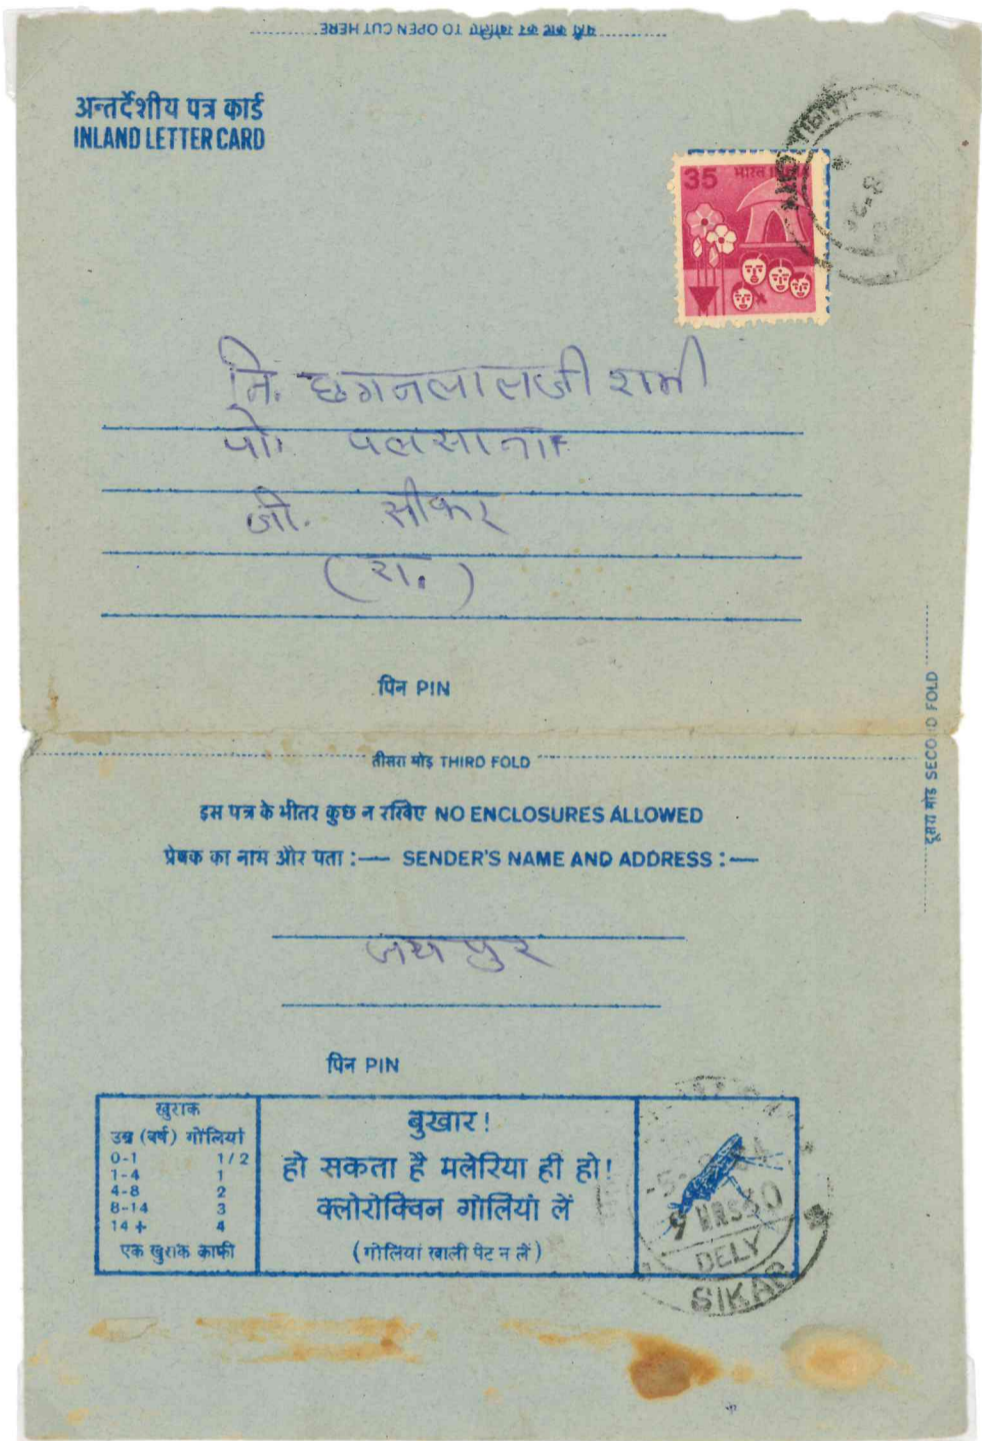 यहाँ काट कर खोलिए TO OPEN CUT HERE
अन्तर्देशीय पत्र कार्ड
INLAND LETTER CARD
35 भारत INDIA
नि. छगनलालजी शर्मा
पो. पलसाना
जी. सीकर
(रा.)
पिन PIN
दूसरा मोड़ SECOND FOLD
तीसरा मोड़ THIRD FOLD
इस पत्र के भीतर कुछ न रखिए NO ENCLOSURES ALLOWED
प्रेषक का नाम और पता :— SENDER'S NAME AND ADDRESS :—
जयपुर
पिन PIN
खुराक
उम्र (वर्ष) गोलियां
0-1 1/2
1-4 1
4-8 2
8-14 3
14 + 4
एक खुराक काफी
बुखार!
हो सकता है मलेरिया ही हो!
क्लोरोक्विन गोलियां लें
(गोलियां खाली पेट न लें)
DELY
SIKAR